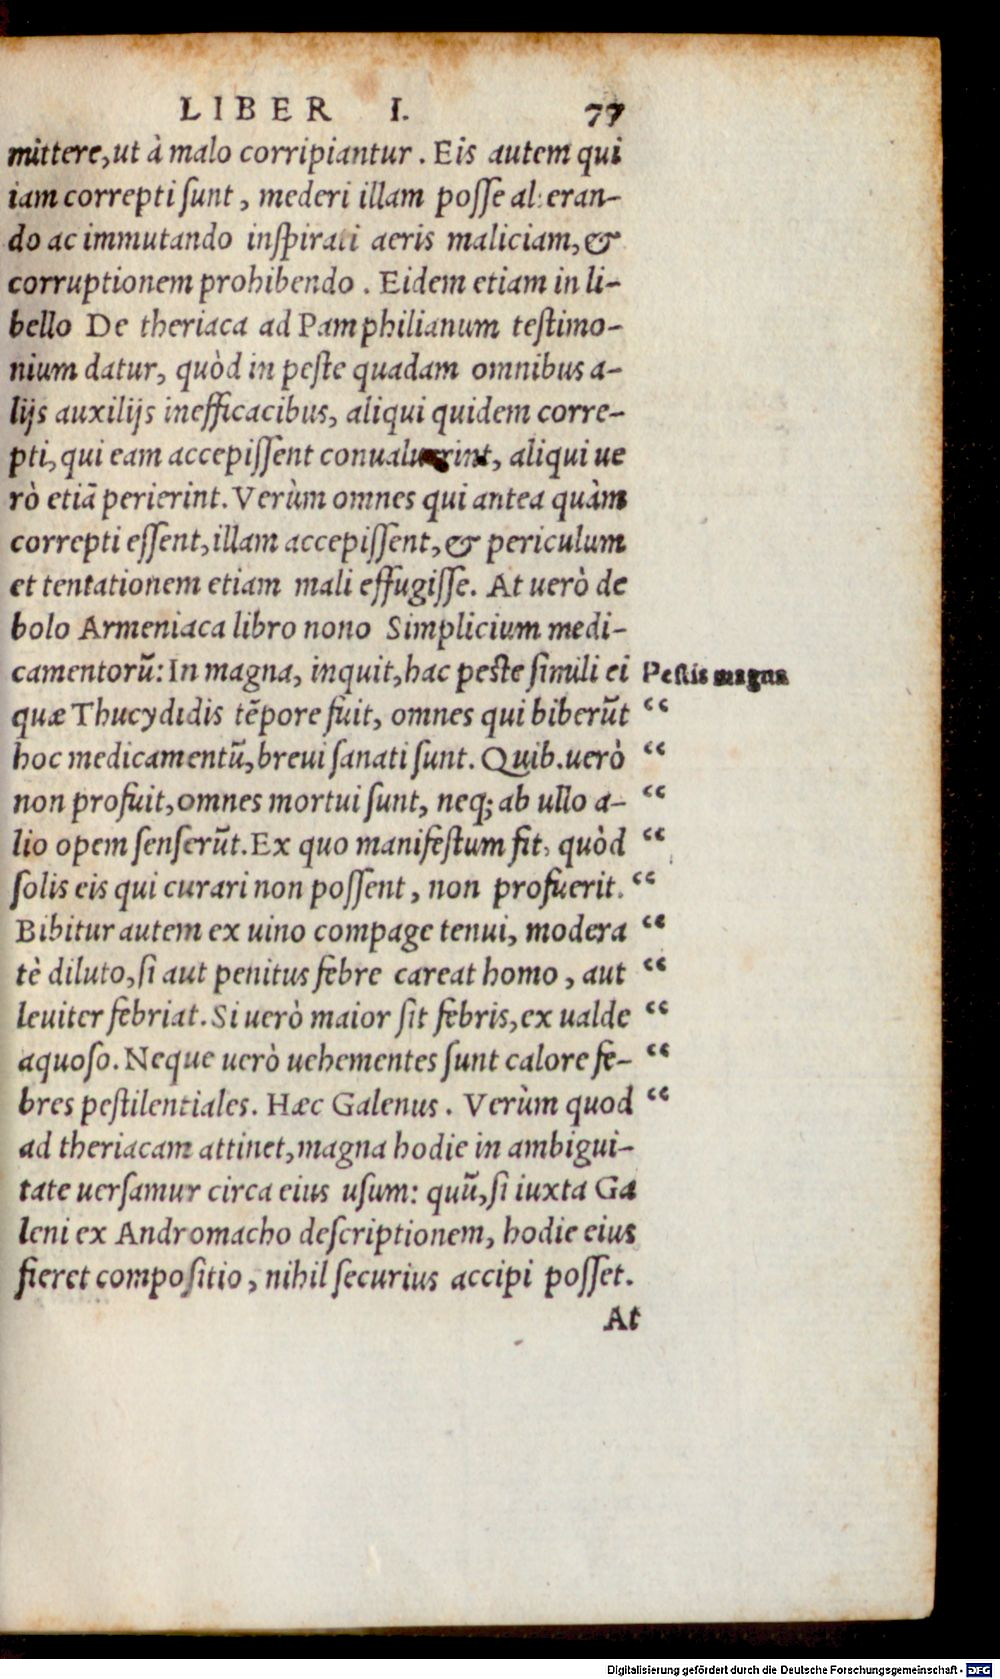 LIBER I. 77
mittere, ut à malo corripiantur. Eis autem qui
iam correpti ſunt, mederi illam poſſe alteran-
do ac immutando inſpirati aeris maliciam, &
corruptionem prohibendo. Eidem etiam in li-
bello De theriaca ad Pamphilianum teſtimo-
nium datur, quòd in peſte quadam omnibus a-
lijs auxilijs inefficacibus, aliqui quidem corre-
pti, qui eam accepiſſent conualuerint, aliqui ue
rò etiā perierint. Verùm omnes qui antea quàm
correpti eſſent, illam accepiſſent, & periculum
et tentationem etiam mali effugiſſe. At uerò de
bolo Armeniaca libro nono Simplicium medi-
camentorū: In magna, inquit, hac peste ſimili ei Peſtis magna
quæ Thucydidis tēpore fuit, omnes qui biberūt “
hoc medicamentū, breui ſanati ſunt. Quib. uerò “
non profuit, omnes mortui ſunt, neq; ab ullo a- “
lio opem ſenſerūt. Ex quo manifeſtum fit, quòd “
ſolis eis qui curari non poſſent, non profuerit. “
Bibitur autem ex uino compage tenui, modera “
tè diluto, ſi aut penitus febre careat homo, aut “
leuiter febriat. Si uerò maior ſit febris, ex ualde “
aquoſo. Neque uerò uehementes ſunt calore fe- “
bres peſtilentiales. Hæc Galenus. Verùm quod “
ad theriacam attinet, magna hodie in ambigui-
tate uerſamur circa eius uſum: quū, ſi iuxta Ga
leni ex Andromacho deſcriptionem, hodie eius
fieret compoſitio, nihil ſecurius accipi poſſet.
At
Digitalisierung gefördert durch die Deutsche Forschungsgemeinschaft - DFG